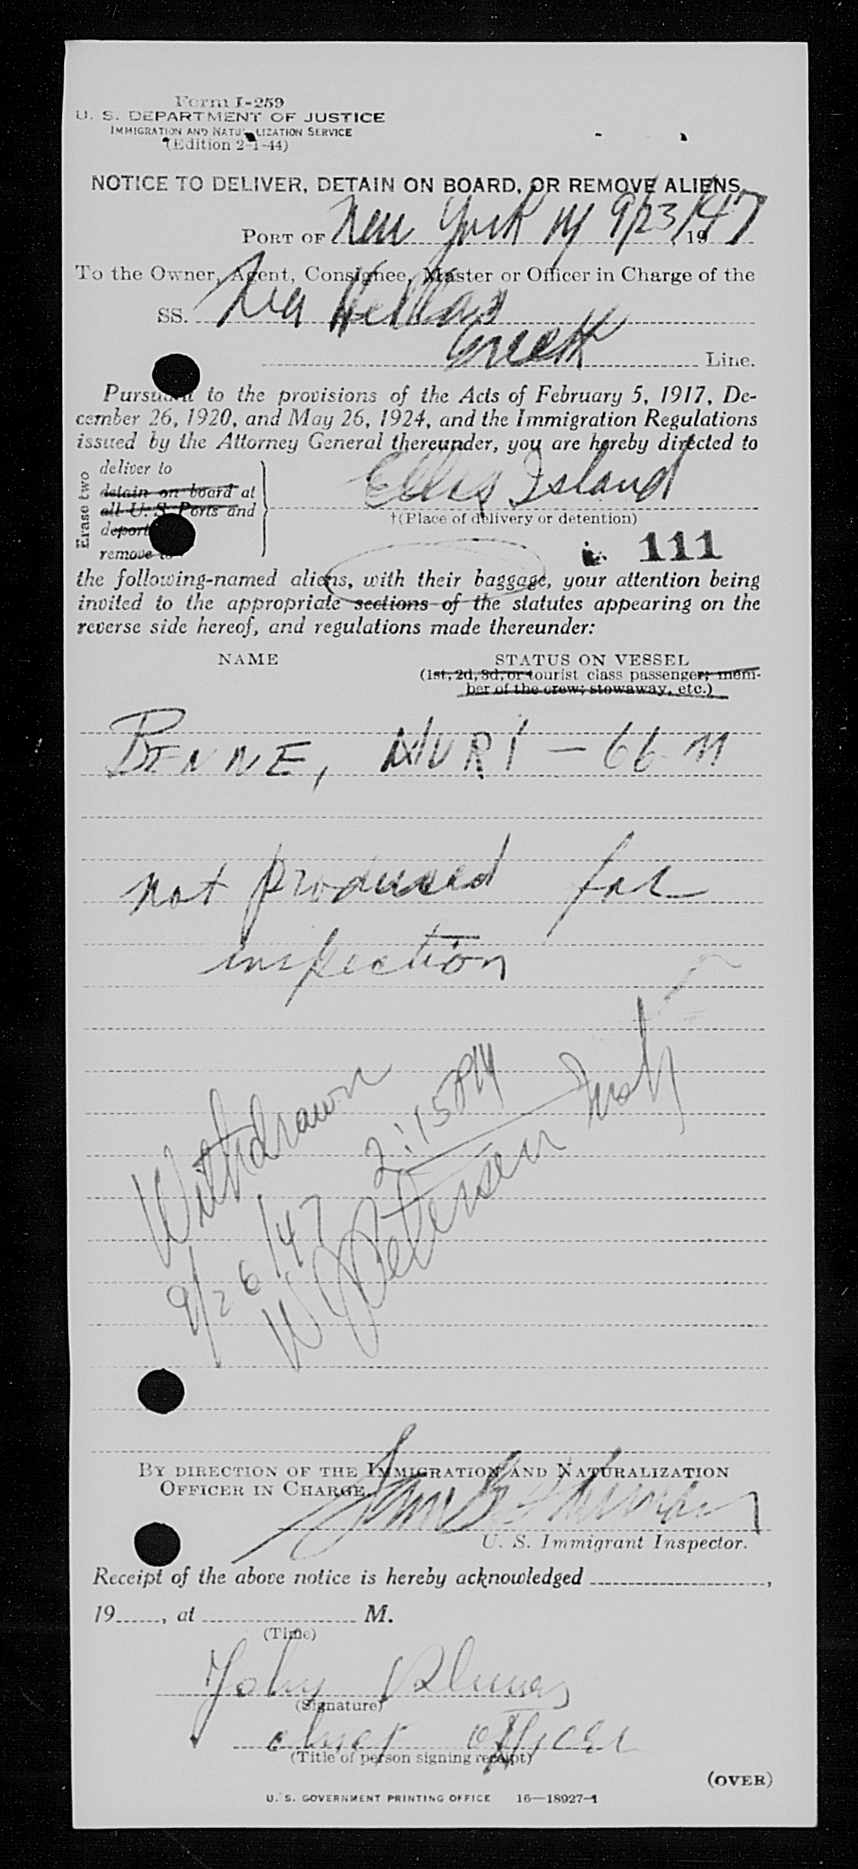 Form I-259
U. S. DEPARTMENT OF JUSTICE
IMMIGRATION AND NATURALIZATION SERVICE
(Edition 2-1-44)
NOTICE TO DELIVER, DETAIN ON BOARD, OR REMOVE ALIENS
PORT OF New York NY 9/23/1947
To the Owner, Agent, Consignee, Master or Officer in Charge of the
SS. Nea Hellas
Greek Line.
Pursuant to the provisions of the Acts of February 5, 1917, De-
cember 26, 1920, and May 26, 1924, and the Immigration Regulations
issued by the Attorney General thereunder, you are hereby directed to
Erase two
deliver to
detain on board at
all U. S. Ports and
deport
remove to
Ellis Island
†(Place of delivery or detention)
111
the following-named aliens, with their baggage, your attention being
invited to the appropriate sections of the statutes appearing on the
reverse side hereof, and regulations made thereunder:
NAME STATUS ON VESSEL
(1st, 2d, 3d, or tourist class passenger; mem-
ber of the crew; stowaway, etc.)
BENNE, NURI — 66 M
not produced for
inspection
Withdrawn 2:15PM
9/26/47 W J Petersen
BY DIRECTION OF THE IMMIGRATION AND NATURALIZATION
OFFICER IN CHARGE.
U. S. Immigrant Inspector.
Receipt of the above notice is hereby acknowledged ,
19 , at M.
(Time)
John
(Signature)
chief officer
(Title of person signing receipt)
(OVER)
U. S. GOVERNMENT PRINTING OFFICE 16—18927-1